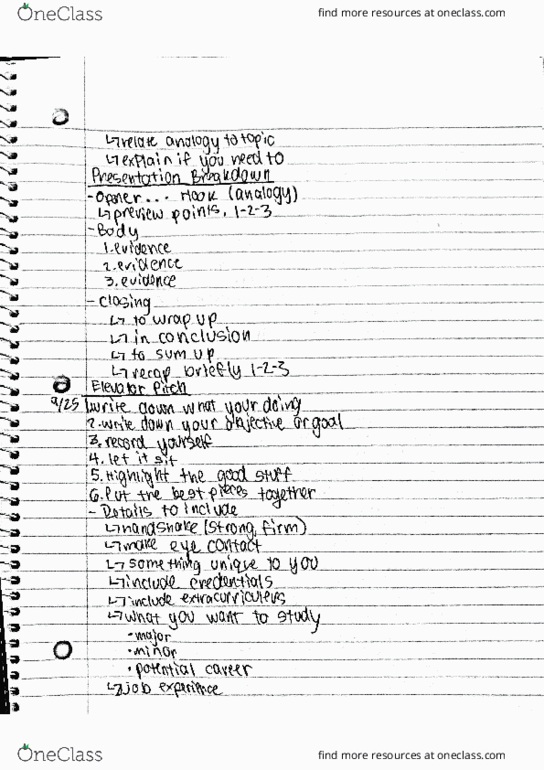 OneClass
find more resources at oneclass.com
↳relate analogy to topic
↳explain if you need to
Presentation Breakdown
-Opener... Hook (analogy)
↳preview points, 1-2-3
-Body
1.evidence
2.evidence
3.evidence
-closing
↳ to wrap up
↳ in conclusion
↳ to sum up
↳recap briefly 1-2-3
Elevator Pitch
9/25 1.write down what your doing
2.write down your objective or goal
3.record yourself
4. let it sit
5.Highlight the good stuff
6.Put the best pieces together
- Details to include
↳handshake (strong, firm)
↳make eye contact
↳something unique to you
↳include credentials
↳include extracurriculers
↳what you want to study
•major
•minor
•potential career
↳job experience
OneClass
find more resources at oneclass.com